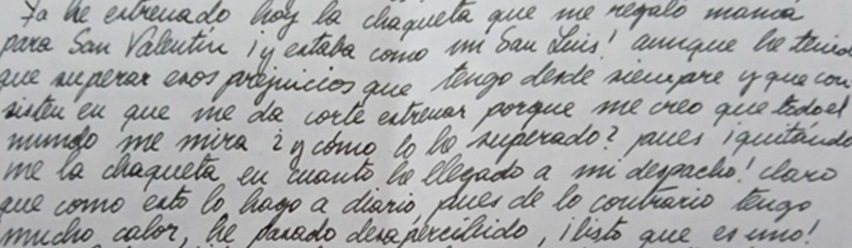 Ya he estrenado hoy la chaqueta que me regaló mamá
para San Valentín ¡y estaba como un San Luis! aunque he tenido
que superar esos prejuicios que tengo desde siempre y que con-
sisten en que me da corte estrenar porque me creo que todo el
mundo me mira ¿y cómo lo he superado? pues ¡quitándo
me la chaqueta en cuanto he llegado a mi despacho! claro
que como esto lo hago a diario, pues de lo contrario tengo
mucho calor, he pasado desapercibido, ¡listo que es uno!